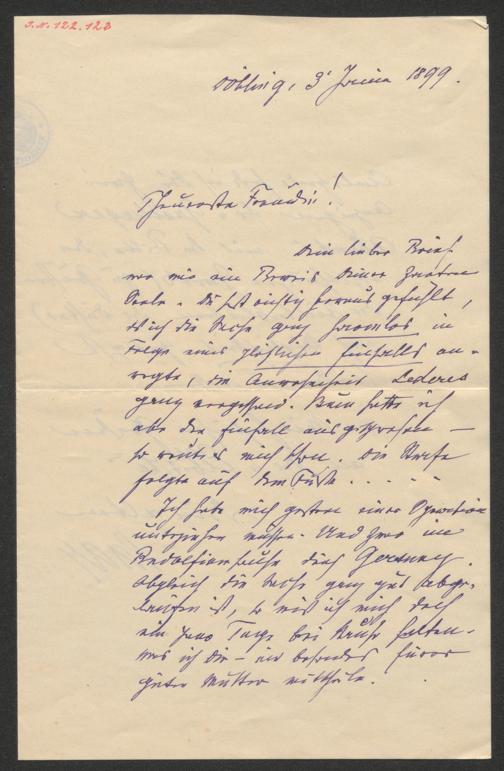 I.N. 122.123
Döbling, 3t Juni 1899.
Theuerste Freundin!
Dein lieber Brief
war mir ein Beweis Deiner
Seele. Du hast richtig herausgefühlt,
daß ich die Sache ganz harmlos in
Folge eines plötzlichen Einfalls an-
regte, die Anwesenheit Lederers
ganz vergessend. Kaum hatte ich
aber den Einfall ausgesprochen —
so reute es mich schon. Die Strafe
folgte auf dem Fuße. . . . . .
Ich habe mich gestern einer Operation
unterziehen müssen. Und zwar im
Rudolfinerhause durch Gersuny.
Obgleich die Sache ganz gut abge-
laufen ist, so muß ich mich doch
ein paar Tage bei Ruhe halten.
was ich Dir – und besonders Eurer
guten Mutter mittheile.